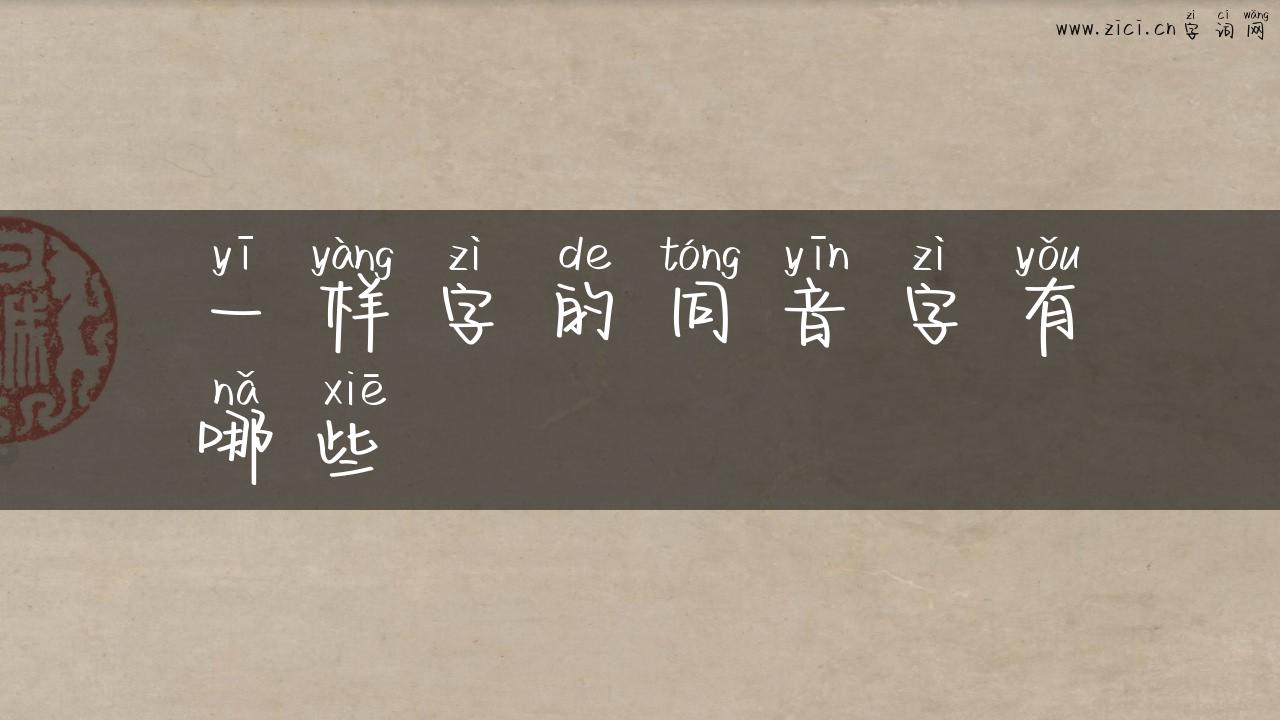 zì cí wǎng
www.zici.cn 字词网
yī yàng zì de tóng yīn zì yǒu
一样字的同音字有
nǎ xiē
哪些